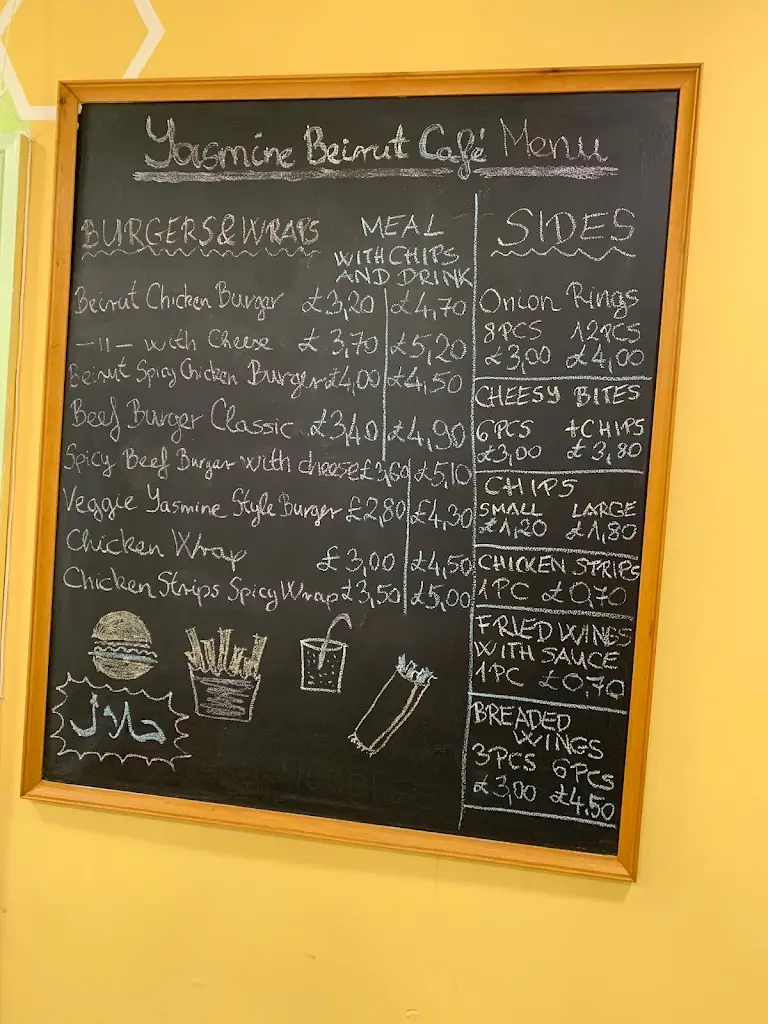 Yasmine Beirut Café Menu
BURGERS & WRAPS
MEAL
WITH CHIPS
AND DRINK
Beirut Chicken Burger £3,20 £4,70
-11- with Cheese £3,70 £5,20
Beirut Spicy Chicken Burger £4,00 £4,50
Beef Burger Classic £3,40 £4,90
Spicy Beef Burger with cheese £3,60 £5,10
Veggie Yasmine Style Burger £2,80 £4,30
Chicken Wrap £3,00 £4,50
Chicken Strips Spicy Wrap £3,50 £5,00
حلال
SIDES
Onion Rings
8PCS 12PCS
£3,00 £4,00
CHEESY BITES
6PCS +CHIPS
£3,00 £3,80
CHIPS
SMALL LARGE
£1,20 £1,80
CHICKEN STRIPS
1PC £0,70
FRIED WINGS
WITH SAUCE
1PC £0,70
BREADED
WINGS
3PCS 6PCS
£3,00 £4,50